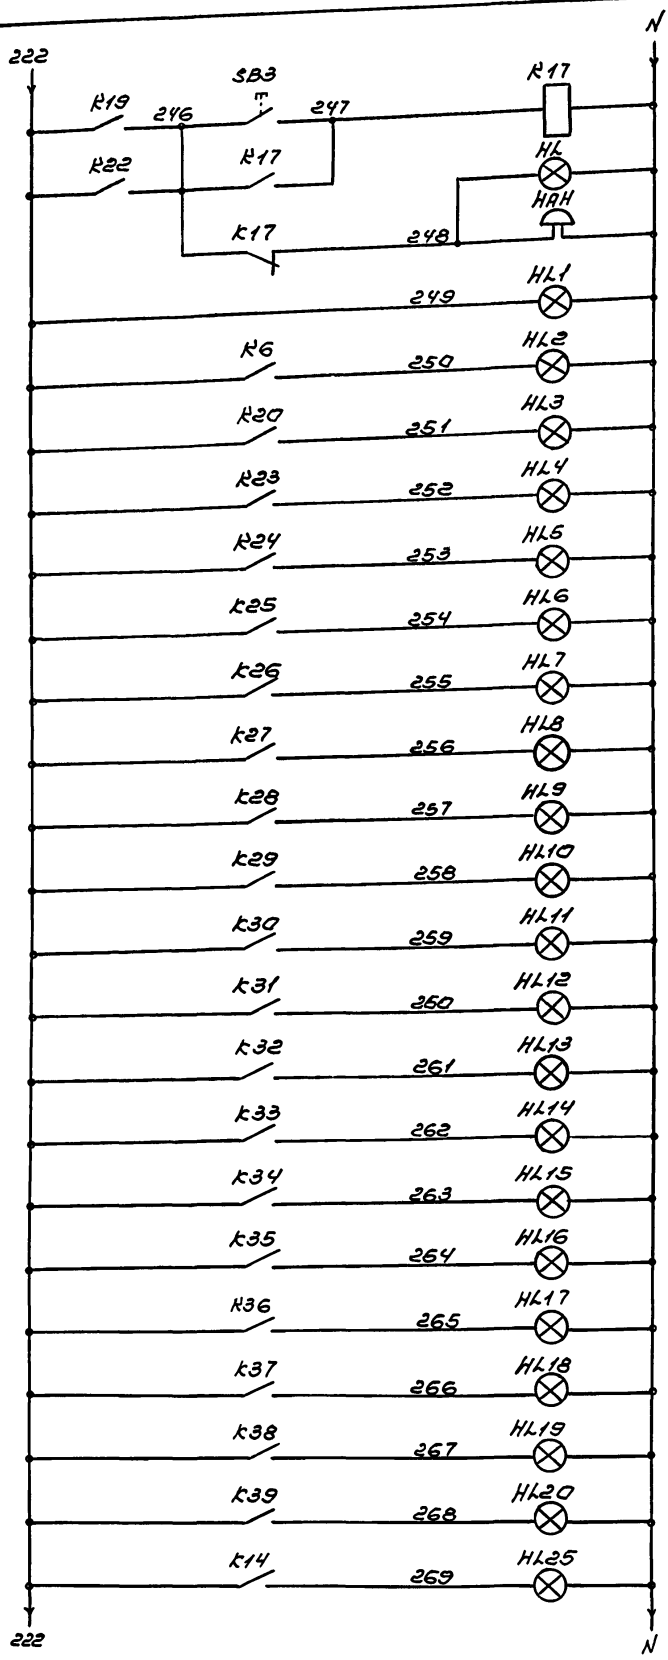 222 N
SB3 K17
K19 246 247
K22 K17 HL
HAH
K17 248
249 HL1
K6 250 HL2
K20 251 HL3
K23 252 HL4
K24 253 HL5
K25 254 HL6
K26 255 HL7
K27 256 HL8
K28 257 HL9
K29 258 HL10
K30 259 HL11
K31 250 HL12
K32 261 HL13
K33 262 HL14
K34 263 HL15
K35 264 HL16
K36 265 HL17
K37 266 HL18
K38 267 HL19
K39 268 HL20
K14 269 HL25
222 N